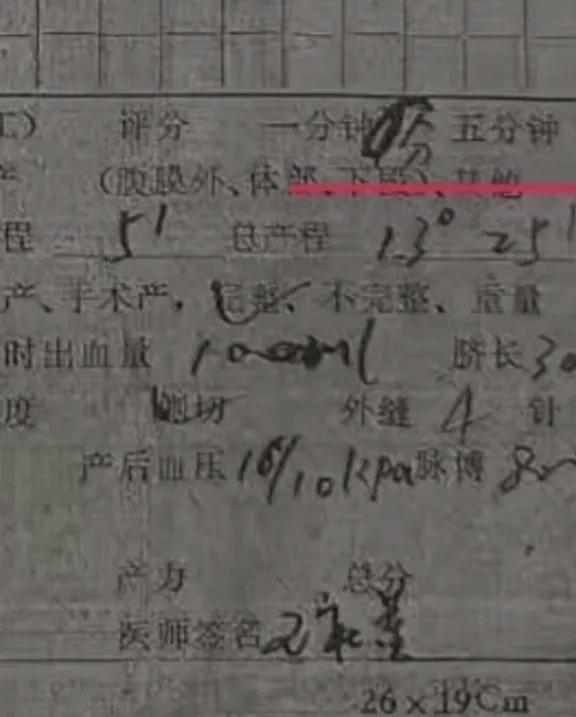 工） 评分 一分钟 分 五分钟
产 （腹膜外、体部、下段）、其他
程 5′ 总产程 13° 25′
产、手术产，完整、不完整、重量
时出血量 100ml 脐长 30
度 侧切 外缝 4 针
产后血压 16/10kpa 脉博 80
产力 总分
医师签名
26×19Cm